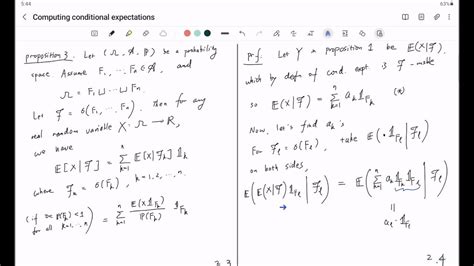 5:44
63%
Computing conditional expectations
proposition 3. Let (Ω, A, P) be a probability
space. Assume F₁, ⋯ Fₙ ∈ A, and
Ω = F₁ ⊔ ⋯ ⊔ Fₙ
Let F = σ(F₁, ⋯ Fₙ), then for any
real random variable X: Ω → R,
we have
E[X|F] = Σₖ₌₁ⁿ E[X|Fₖ] 1_Fₖ
where Fₖ = σ(Fₖ), k = 1, 2, ⋯, n.
(if 0< P(Fₖ) <1 for all k=1, ⋯ n) = Σₖ₌₁ⁿ E(X 1_Fₖ) / P(Fₖ) 1_Fₖ
3.3
prf. Let Y proposition 1 be E(X|F),
which by defn of cond. expt. is F-mable
so E(X|F) = Σₖ₌₁ⁿ aₖ 1_Fₖ (*)
Now, let's find aₖ's
For F_ℓ = σ(F_ℓ), take E(· 1_F_ℓ | F_ℓ)
on both sides,
E(E(X|F) 1_F_ℓ | F_ℓ) = E(Σₖ₌₁ⁿ aₖ 1_Fₖ 1_F_ℓ | F_ℓ)
→ ||
a_ℓ · 1_F_ℓ
2.4